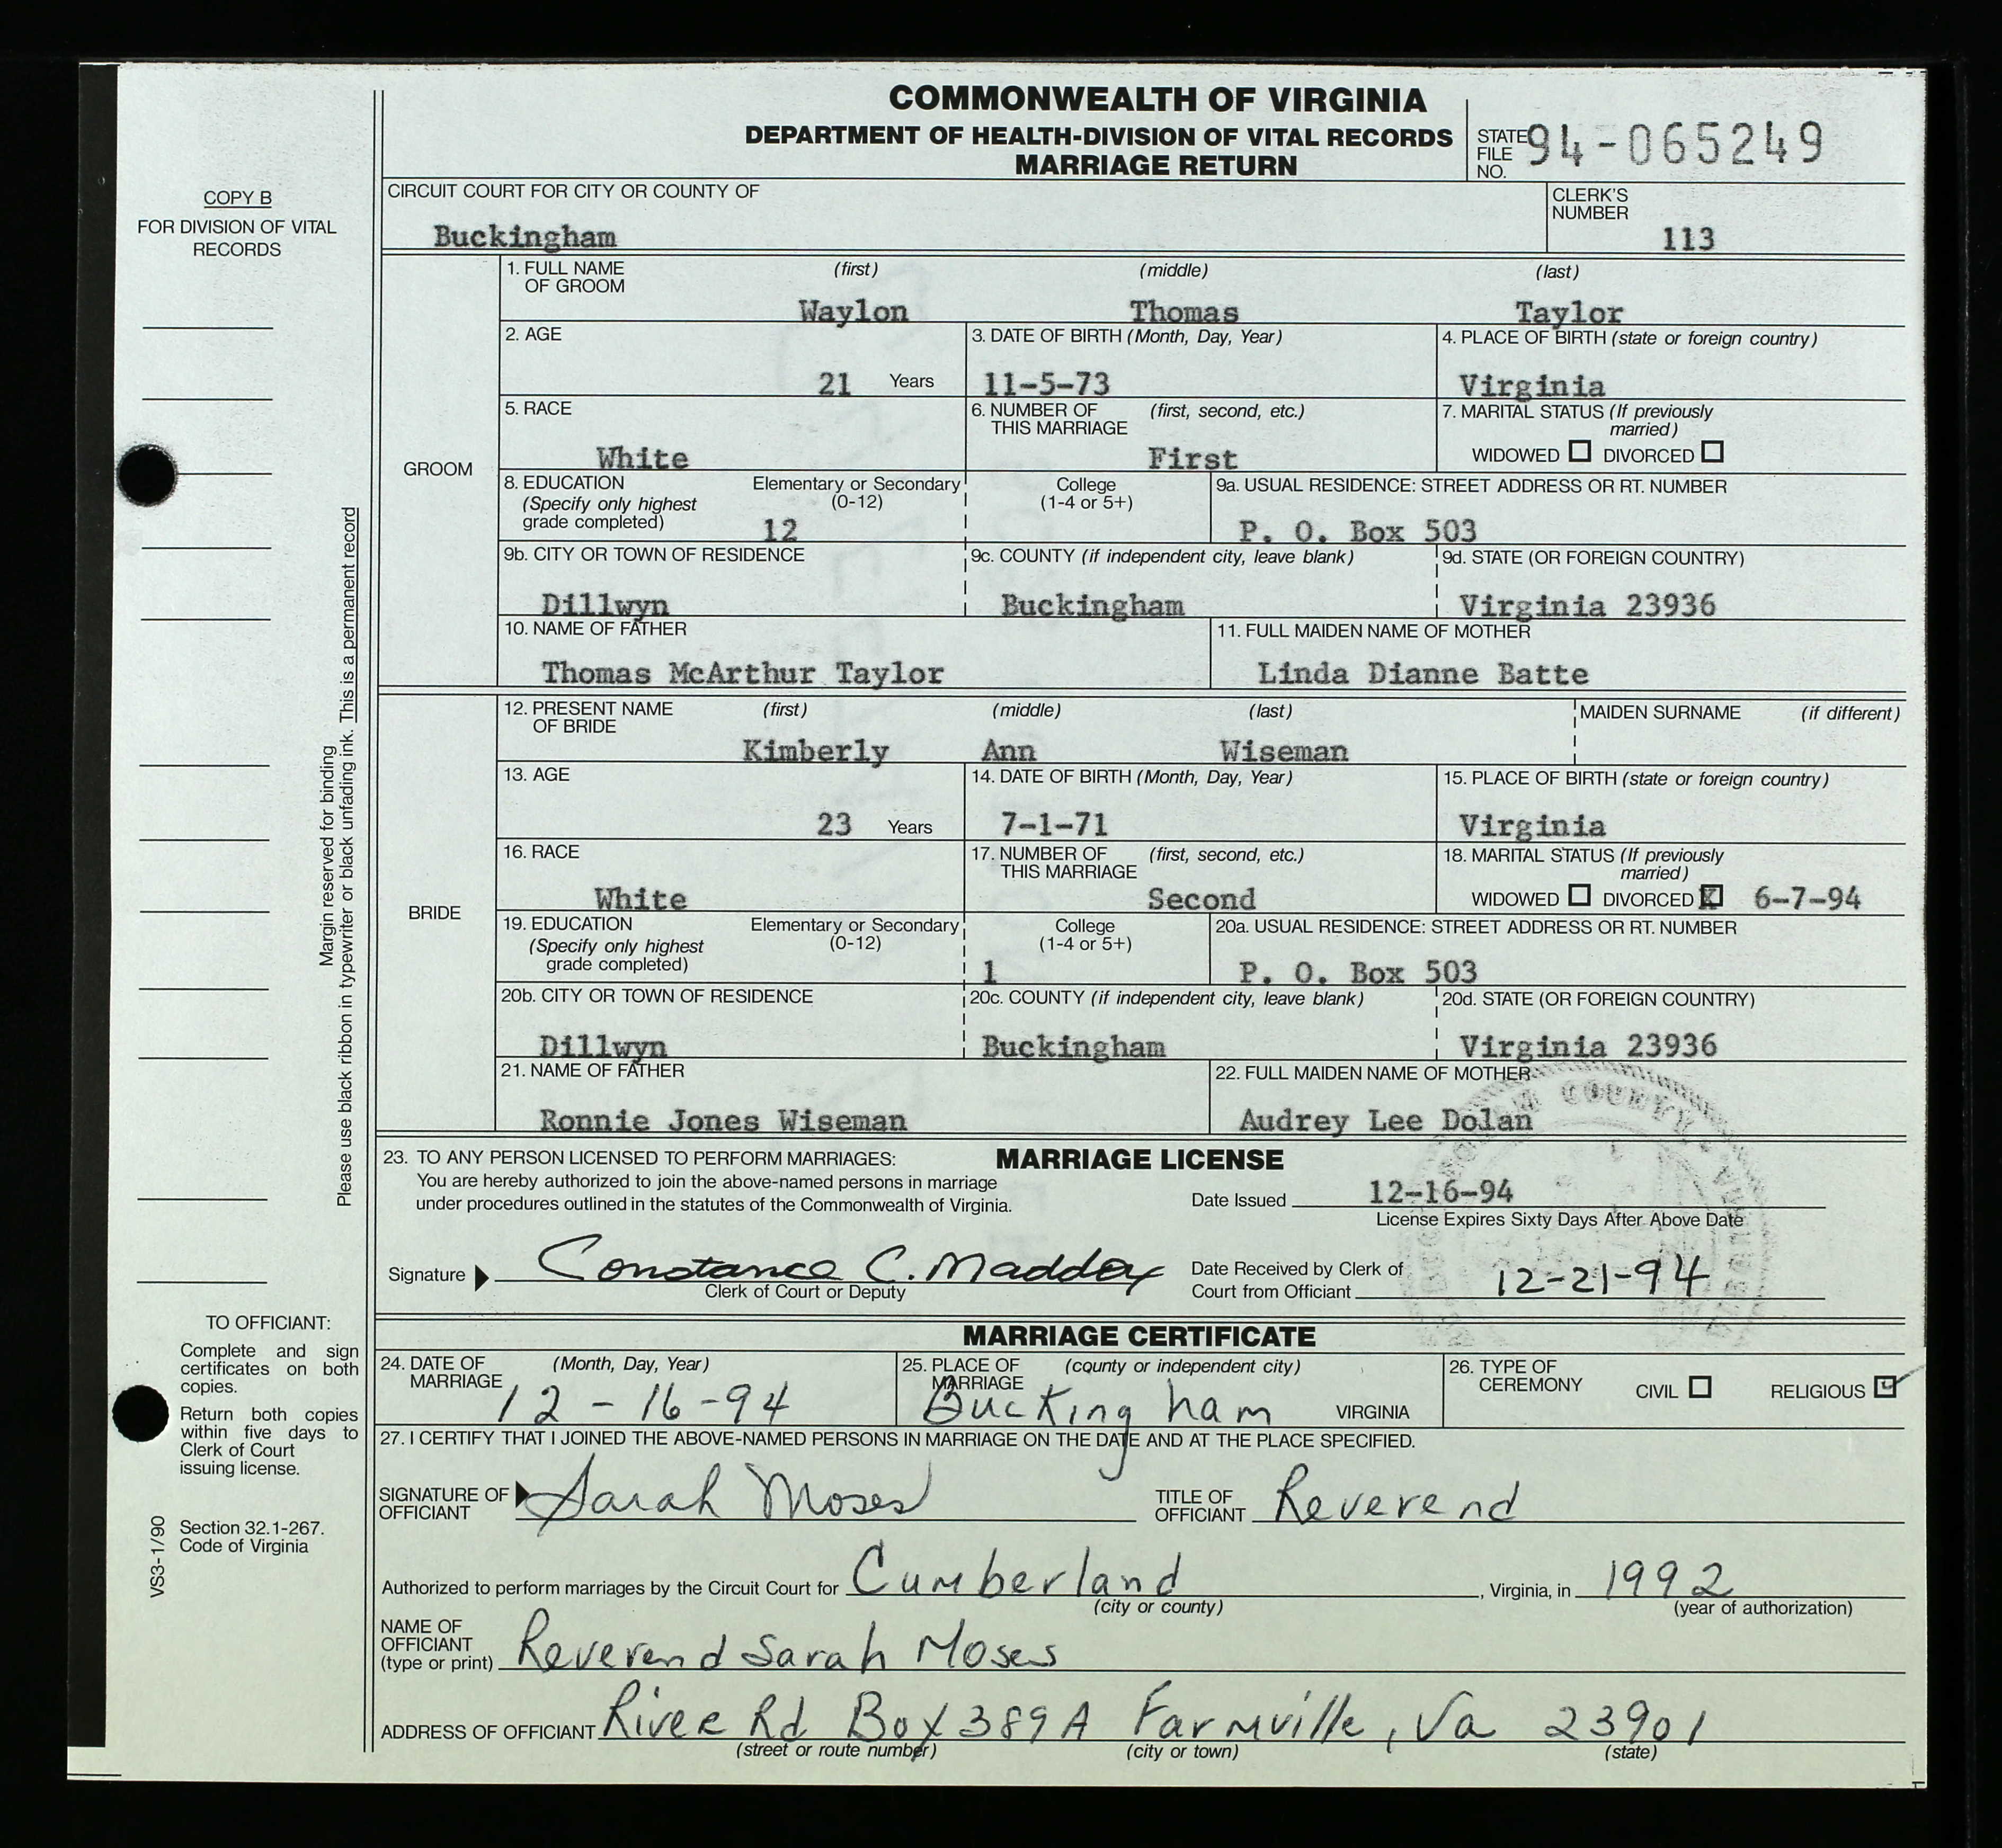 COMMONWEALTH OF VIRGINIA
DEPARTMENT OF HEALTH-DIVISION OF VITAL RECORDS
MARRIAGE RETURN
STATE FILE NO. 94-065249
COPY B
FOR DIVISION OF VITAL RECORDS
CIRCUIT COURT FOR CITY OR COUNTY OF
Buckingham
CLERK'S NUMBER
113
GROOM
1. FULL NAME OF GROOM (first) (middle) (last)
Waylon Thomas Taylor
2. AGE
21 Years
3. DATE OF BIRTH (Month, Day, Year)
11-5-73
4. PLACE OF BIRTH (state or foreign country)
Virginia
5. RACE
White
6. NUMBER OF THIS MARRIAGE (first, second, etc.)
First
7. MARITAL STATUS (If previously married)
WIDOWED DIVORCED
8. EDUCATION (Specify only highest grade completed)
Elementary or Secondary (0-12)
12
College (1-4 or 5+)
9a. USUAL RESIDENCE: STREET ADDRESS OR RT. NUMBER
P. O. Box 503
9b. CITY OR TOWN OF RESIDENCE
Dillwyn
9c. COUNTY (if independent city, leave blank)
Buckingham
9d. STATE (OR FOREIGN COUNTRY)
Virginia 23936
10. NAME OF FATHER
Thomas McArthur Taylor
11. FULL MAIDEN NAME OF MOTHER
Linda Dianne Batte
BRIDE
12. PRESENT NAME OF BRIDE (first) (middle) (last)
Kimberly Ann Wiseman
MAIDEN SURNAME (if different)
13. AGE
23 Years
14. DATE OF BIRTH (Month, Day, Year)
7-1-71
15. PLACE OF BIRTH (state or foreign country)
Virginia
16. RACE
White
17. NUMBER OF THIS MARRIAGE (first, second, etc.)
Second
18. MARITAL STATUS (If previously married)
WIDOWED DIVORCED X 6-7-94
19. EDUCATION (Specify only highest grade completed)
Elementary or Secondary (0-12)
College (1-4 or 5+)
1
20a. USUAL RESIDENCE: STREET ADDRESS OR RT. NUMBER
P. O. Box 503
20b. CITY OR TOWN OF RESIDENCE
Dillwyn
20c. COUNTY (if independent city, leave blank)
Buckingham
20d. STATE (OR FOREIGN COUNTRY)
Virginia 23936
21. NAME OF FATHER
Ronnie Jones Wiseman
22. FULL MAIDEN NAME OF MOTHER
Audrey Lee Dolan
Margin reserved for binding
Please use black ribbon in typewriter or black unfading ink. This is a permanent record
23. TO ANY PERSON LICENSED TO PERFORM MARRIAGES:
MARRIAGE LICENSE
You are hereby authorized to join the above-named persons in marriage
under procedures outlined in the statutes of the Commonwealth of Virginia.
Date Issued 12-16-94
License Expires Sixty Days After Above Date
Signature Constance C. Maddox
Clerk of Court or Deputy
Date Received by Clerk of Court from Officiant 12-21-94
MARRIAGE CERTIFICATE
24. DATE OF MARRIAGE (Month, Day, Year)
12-16-94
25. PLACE OF MARRIAGE (county or independent city)
Buckingham VIRGINIA
26. TYPE OF CEREMONY CIVIL RELIGIOUS
27. I CERTIFY THAT I JOINED THE ABOVE-NAMED PERSONS IN MARRIAGE ON THE DATE AND AT THE PLACE SPECIFIED.
SIGNATURE OF OFFICIANT Sarah Moses
TITLE OF OFFICIANT Reverend
Authorized to perform marriages by the Circuit Court for Cumberland, Virginia, in 1992
(city or county) (year of authorization)
NAME OF OFFICIANT (type or print) Reverend Sarah Moses
ADDRESS OF OFFICIANT River Rd Box 389A Farmville, Va 23901
(street or route number) (city or town) (state)
TO OFFICIANT:
Complete and sign
certificates on both
copies.
Return both copies
within five days to
Clerk of Court
issuing license.
Section 32.1-267.
Code of Virginia
VS3-1/90